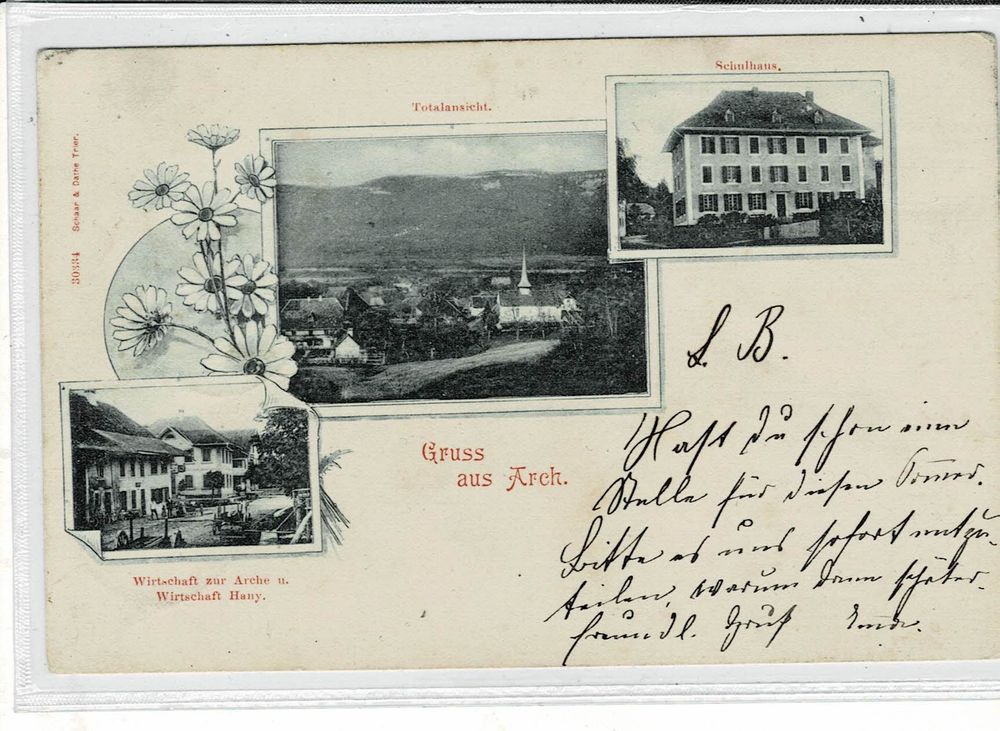 Schulhaus.
Totalansicht.
30334 Schaar & Dathe Trier.
L. B.
Hast du schon einen
Stelle für diesen Sommer.
Bitte es uns sofort mitzu-
teilen, warum dann später.
freundl. Gruß
Gruss
aus Arch.
Wirtschaft zur Arche u.
Wirtschaft Hany.